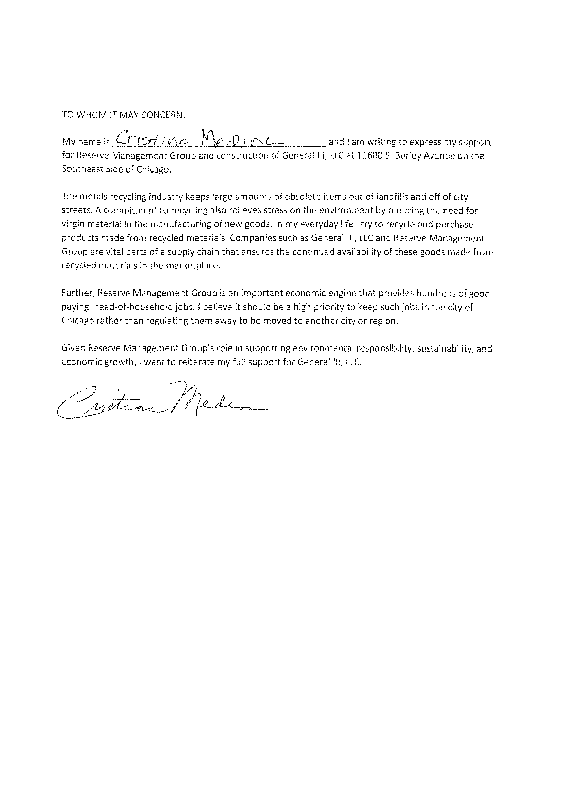 TO WHOM IT MAY CONCERN:
My name is Cristina Medina and I am writing to express my support
for Reserve Management Group and construction of General III, LLC at 11600 S. Burley Avenue on the
Southeast side of Chicago.
The metals recycling industry keeps large amounts of obsolete items out of landfills and off of city
streets. A component to recycling also relieves stress on the environment by reducing the need for
virgin material in the manufacturing of new goods. In my everyday life I try to recycle and purchase
products made from recycled materials. Companies such as General III, LLC and Reserve Management
Group are vital parts of a supply chain that ensures the continued availability of these goods made from
recycled materials in the marketplace.
Further, Reserve Management Group is an important economic engine that provides hundreds of good
paying, head-of-household jobs. I believe it should be a high priority to keep such jobs in the city of
Chicago rather than regulating them away to be moved to another city or region.
Given Reserve Management Group's role in supporting environmental responsibility, sustainability, and
economic growth, I want to reiterate my full support for General III, LLC.
Cristina Medina